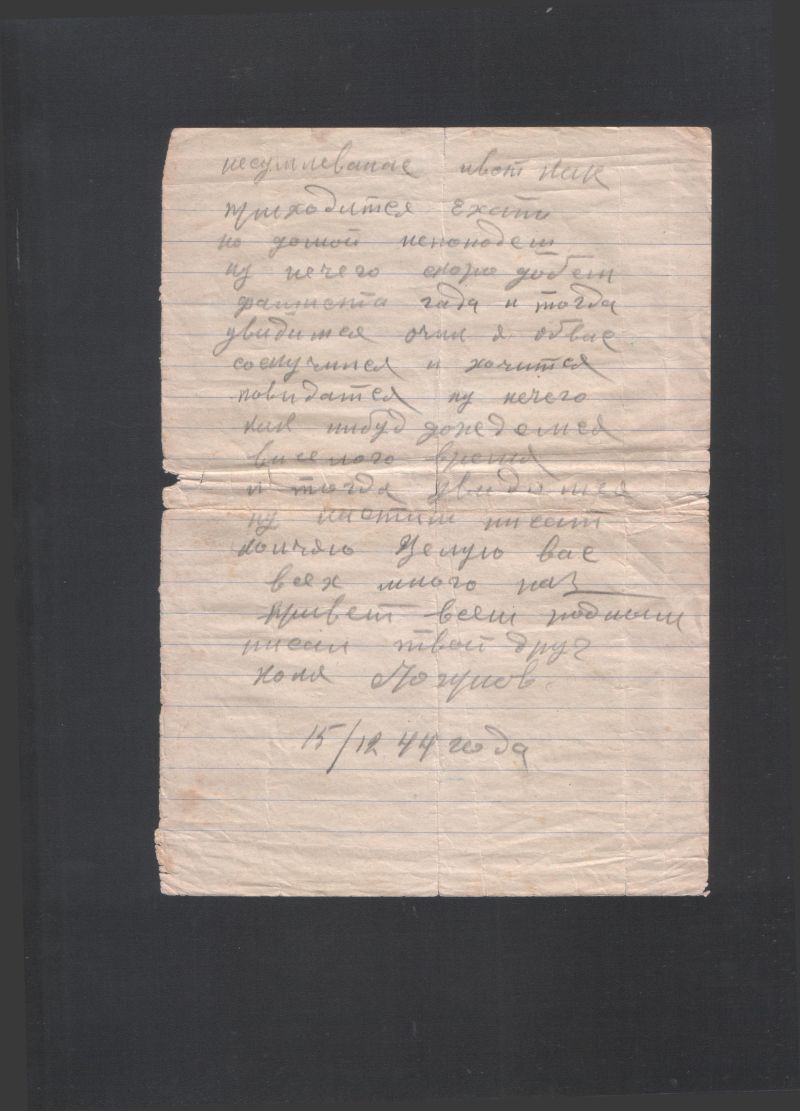 ивот как
приходится ехать
но домой непопадеш
ну нечего скоро добем
фашиста гада и тогда
увидимся очин я обвас
соскучился и хочится
повидатся ну нечего
как нибуд дождемся
виселого время
и тогда увидимся
ну писат
кончяю Целую вас
всех много раз
привет всем родным
писал твой друг
Коля
15/12 44 года